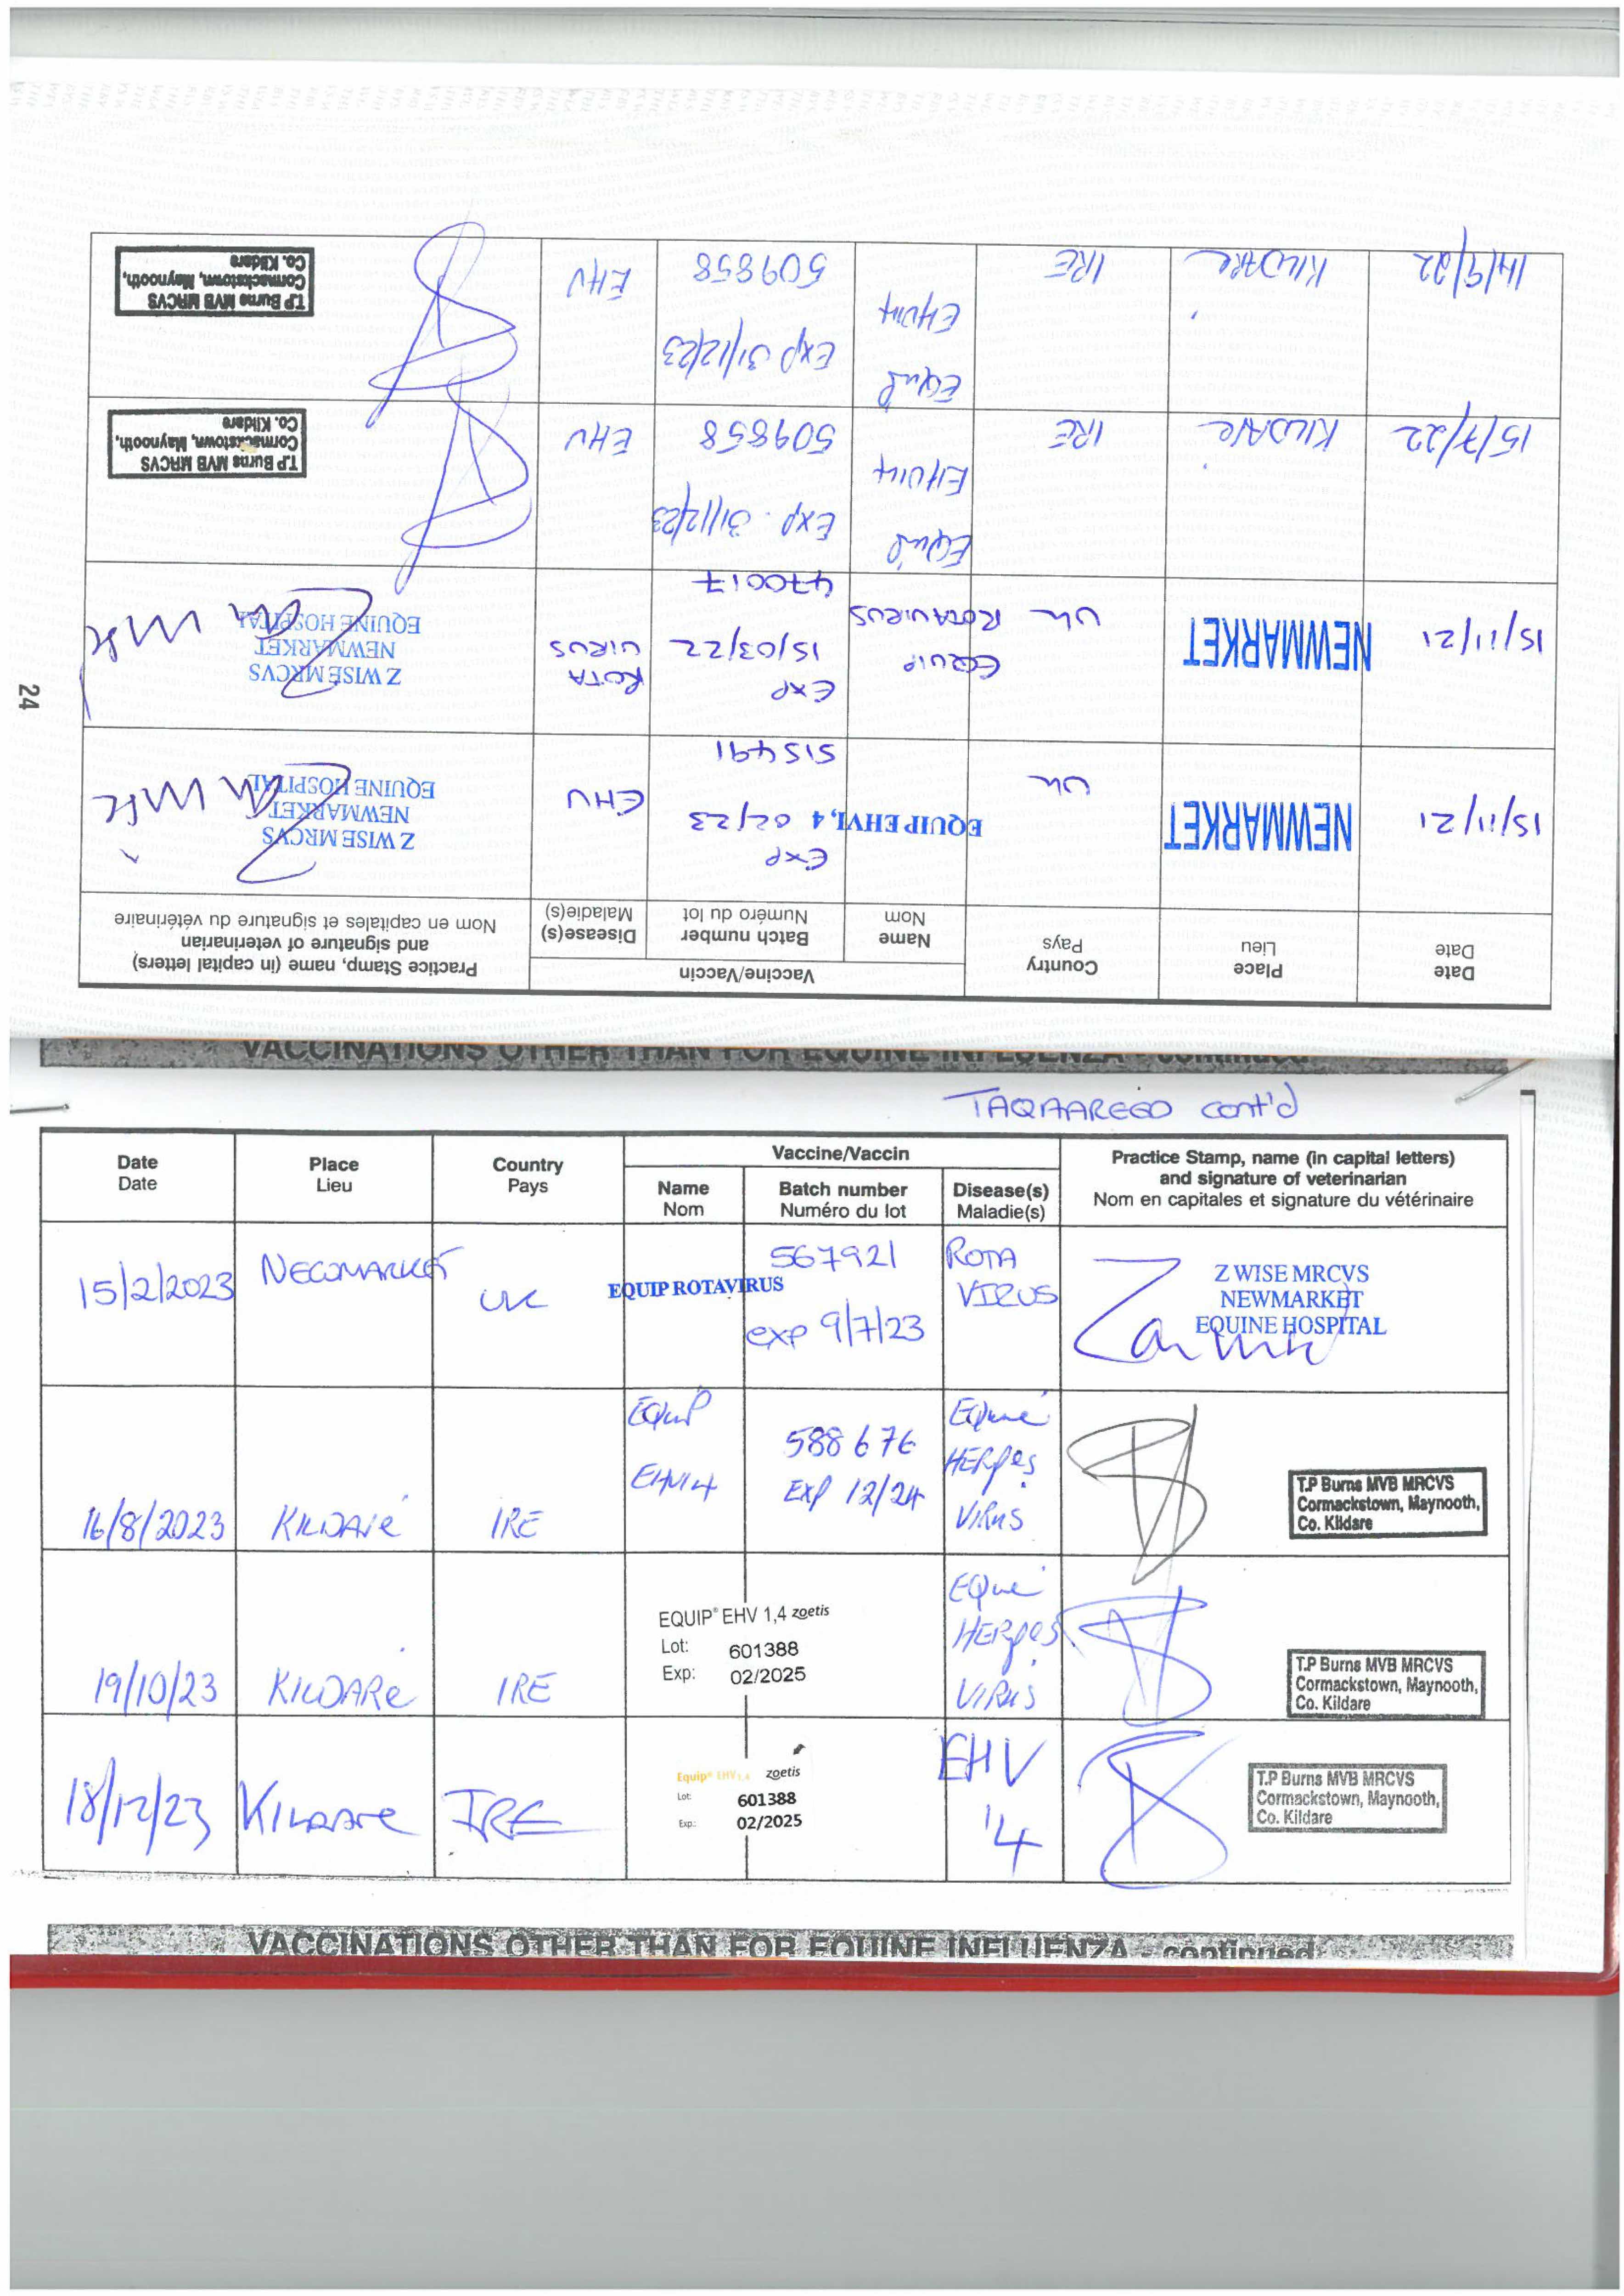 24
Date
Date
Place
Lieu
Country
Pays
Vaccine/Vaccin
Name
Nom
Batch number
Numéro du lot
Disease(s)
Maladie(s)
Practice Stamp, name (in capital letters)
and signature of veterinarian
Nom en capitales et signature du vétérinaire
15/11/21
NEWMARKET
UK
EQUIP EHV1, 4
Exp
02/23
515491
EHV
Z WISE MRCVS
NEWMARKET
EQUINE HOSPITAL
15/11/21
NEWMARKET
UK
EQUIP
ROTAVIRUS
EXP
15/03/22
470017
ROTA
VIRUS
Z WISE MRCVS
NEWMARKET
EQUINE HOSPITAL
15/7/22
KILDARE
IRE
Equip
EHV14
Exp. 31/12/23
509858
EHV
T.P Burns MVB MRCVS
Cormackstown, Maynooth,
Co. Kildare
14/9/22
KILDARE
IRE
Equip
EHV14
Exp 31/12/23
509858
EHV
T.P Burns MVB MRCVS
Cormackstown, Maynooth,
Co. Kildare
VACCINATIONS OTHER THAN FOR EQUINE INFLUENZA - continued
TAQAAREED cont'd
Date
Date
Place
Lieu
Country
Pays
Vaccine/Vaccin
Name
Nom
Batch number
Numéro du lot
Disease(s)
Maladie(s)
Practice Stamp, name (in capital letters)
and signature of veterinarian
Nom en capitales et signature du vétérinaire
15/2/2023
NEWMARKET
UK
EQUIP ROTAVIRUS
567921
exp 9/7/23
ROTA
VIRUS
Z WISE MRCVS
NEWMARKET
EQUINE HOSPITAL
16/8/2023
KILDARE
IRE
Equip
EHV14
588676
Exp 12/24
Equine
HERpes
VIRUS
T.P Burns MVB MRCVS
Cormackstown, Maynooth,
Co. Kildare
19/10/23
KILDARE
IRE
EQUIP® EHV 1,4 zoetis
Lot: 601388
Exp: 02/2025
EQuie
HERpes
VIRUS
T.P Burns MVB MRCVS
Cormackstown, Maynooth,
Co. Kildare
18/12/23
KILDARE
IRE
Equip® EHV 1,4 zoetis
Lot: 601388
Exp.: 02/2025
EHV
14
T.P Burns MVB MRCVS
Cormackstown, Maynooth,
Co. Kildare
VACCINATIONS OTHER THAN FOR EQUINE INFLUENZA - continued